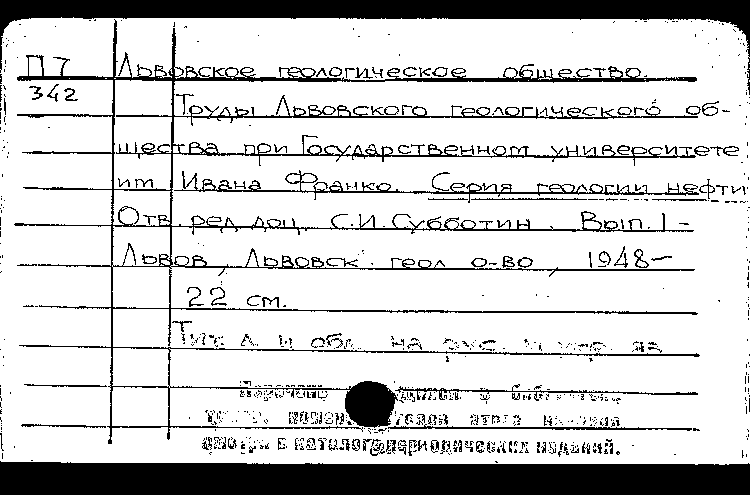 П 7 Львовское геологическое общество.
342
Труды Львовского геологического об-
щества при Государственном университете
им Ивана Франко. Серия геологии нефти
Отв. ред. доц. С.И. Субботин. Вып. 1 -
Львов, Львовск. геол о-во, 1948—
22 см.
Тит. л. и обл. на рус. и укр. яз
Перечень в
этого
смотри в каталоге периодических изданий.